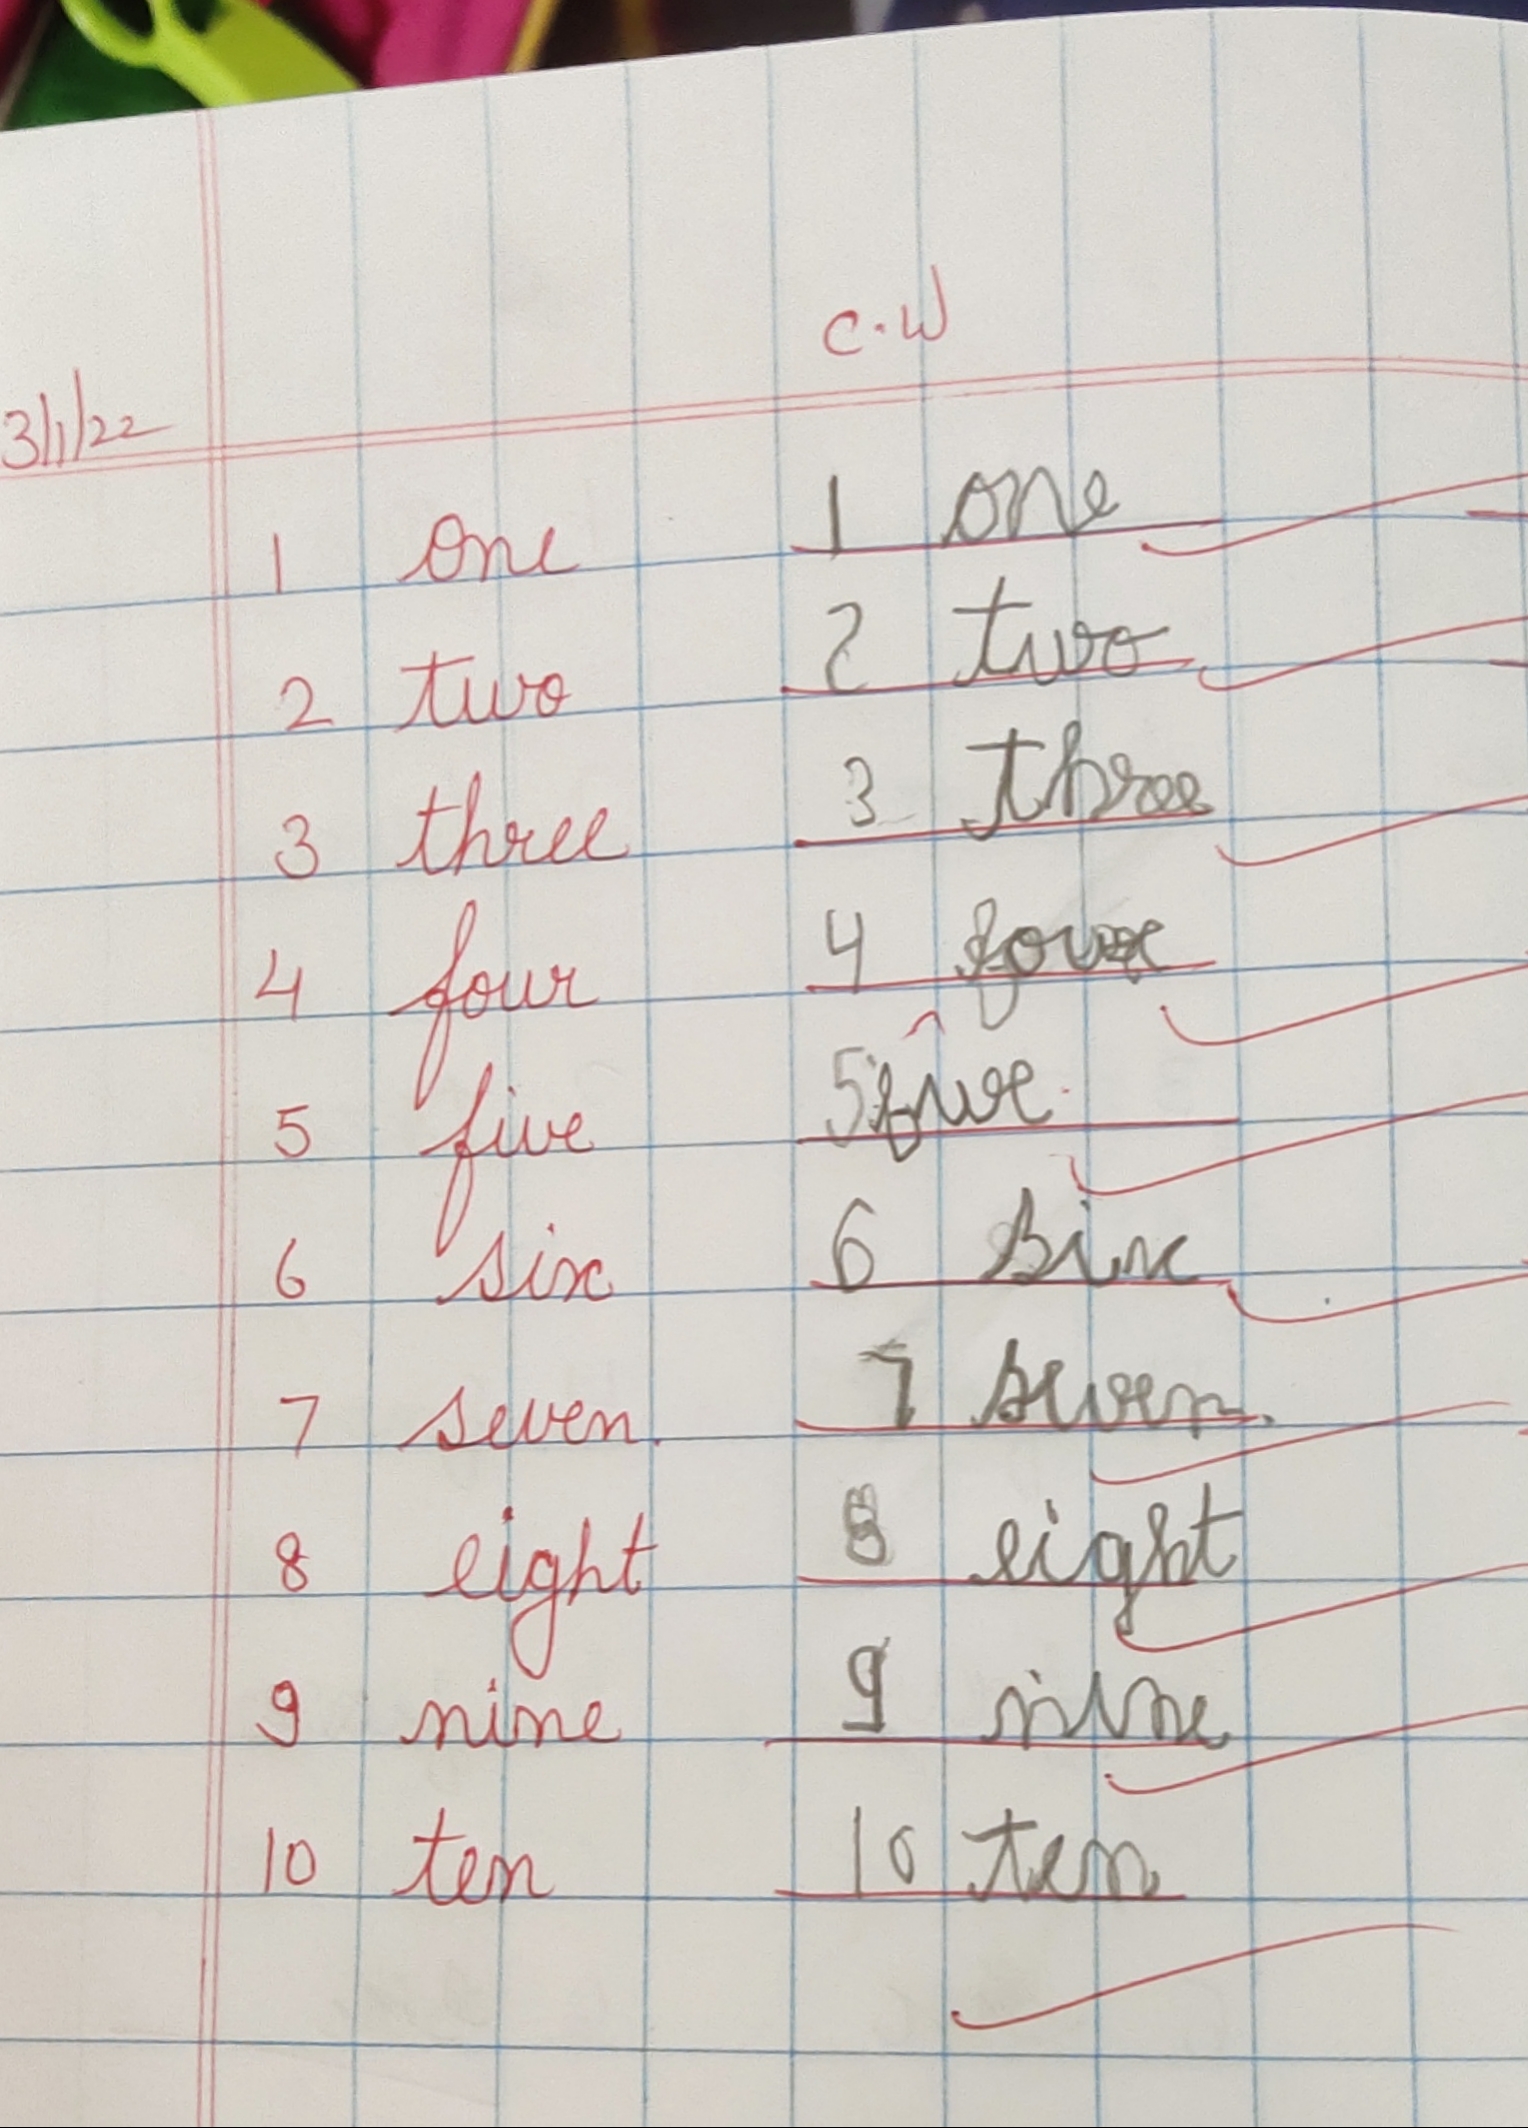 C.W
3/1/22
1 one 1 one
2 two 2 two
3 three 3 three
4 four 4 four
5 five 5 five
6 six 6 six
7 seven. 7 seven.
8 eight 8 eight
9 nine 9 nine
10 ten 10 ten